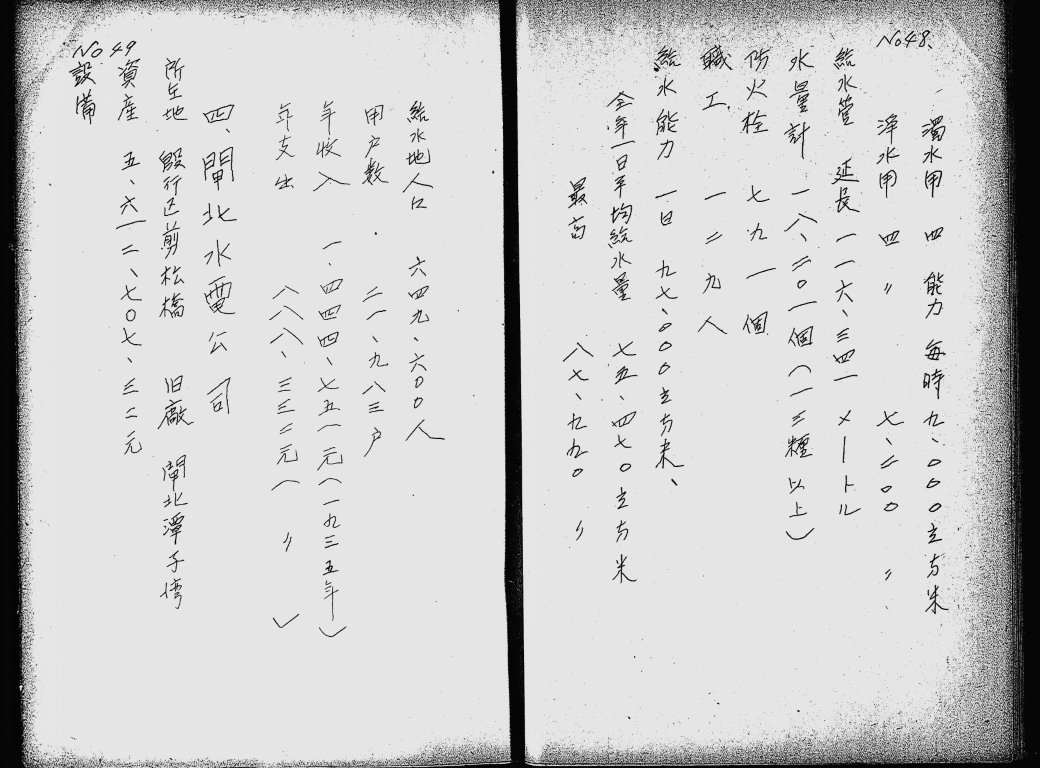 No48.
濁水用 四 能力 每時九、〇〇〇立方米
浄水用 四 〃 七、二〇〇 〃
給水管 延長 一一六、三四一メートル
水量計 一八、二〇一個(一三糎以上)
防火栓 七九一個
職工 一二九人
給水能力 一日 九七、〇〇〇立方米、
全年一日平均給水量 七五、四七〇立方米
最高 八七、九九〇 〃
給水地人口 六四九、六〇〇人
用户数 二一、九八三户
年收入 一、四四四、七五一元(一九三五年)
年支出 八八八、三三二元(〃)
四、閘北水電公司
所在地 殷行区剪松橋 旧廠 閘北潭子湾
資産 五、六一二、七〇七、三二元
設備
No 49